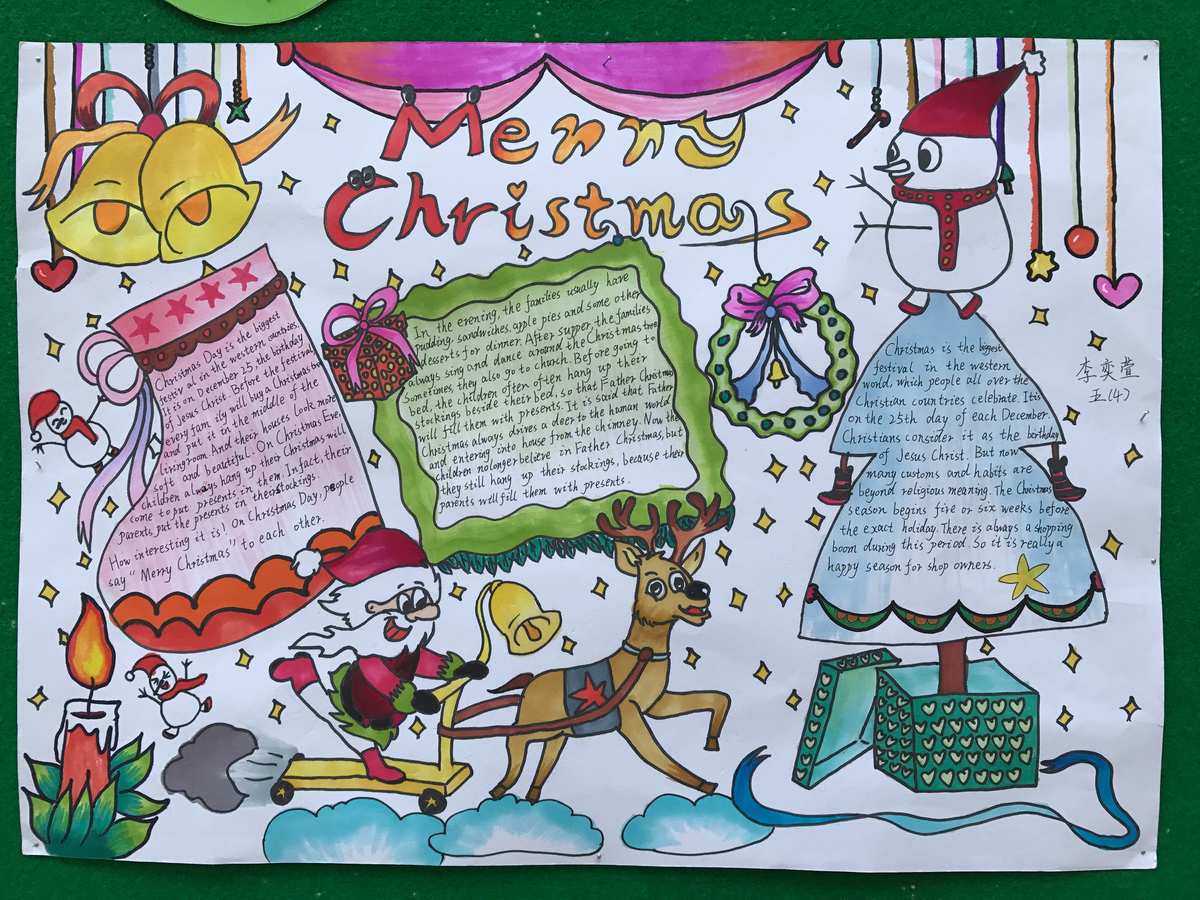 Merry
Christmas
Christmas Day is the biggest
festival in the western countries.
It is on December 25, the birthday
of Jesus Christ. Before the festival,
every fam ily will buy a Christmas tree
and put it in the middle of the
living room. And their houses look more
soft and beautiful. On Christmas Eve,
children always hang up their Christmas
come to put presents in them. In fact, their
parents put the presents in their stockings.
How interesting it is! On Christmas Day, people
say "Merry Christmas" to each other.
In the evening, the families usually have
pudding, sandwiches, apple pies and some other
desserts for dinner. After supper, the families
always sing and dance around the Christmas tree
Sometimes they also go to church. Before going to
bed, the children often often hang up their
stockings beside their bed, so that Father Christmas
will fill them with presents. It is said that Father
Christmas always drives a deer to the human world
and entering into house from the chimney. Now the
children no longer believe in Father Christmas, but
they still hang up their stockings, because their
parents will fill them with presents.
Christmas is the biggest
festival in the western
world, which people all over the
Christian countries celebrate. It is
on the 25th day of each December.
Christians consider it as the birthday
of Jesus Christ. But now
many customs and habits are
beyond religious meaning. The Christmas
season begins five or six weeks before
the exact holiday. There is always a shopping
boom during this period. So it is really a
happy season for shop owners.
李奕萱
五(4)